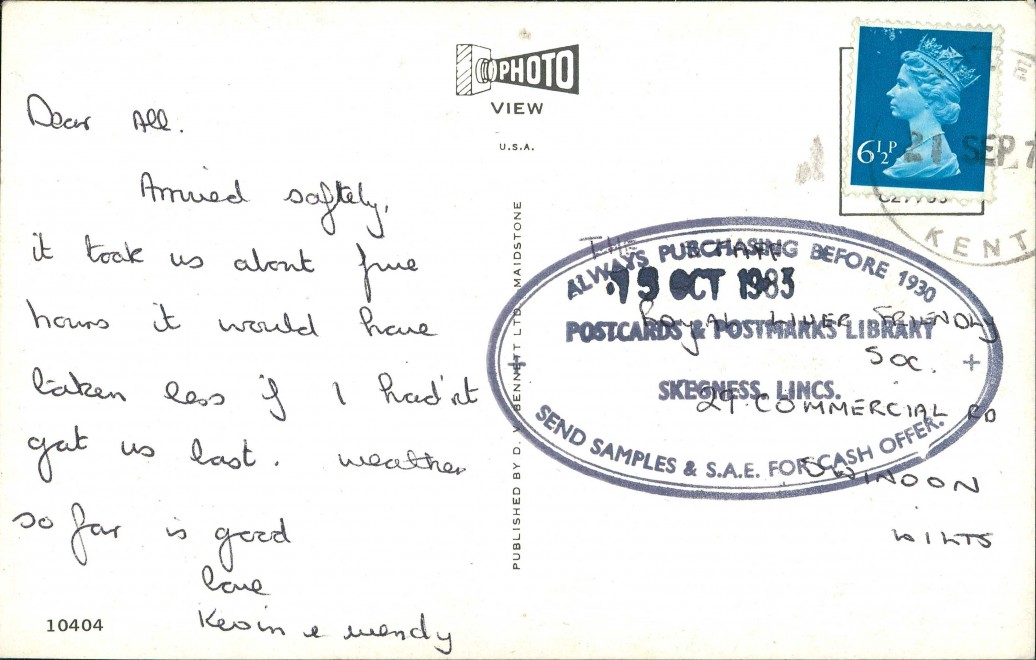 Dear All.
Arrived saftely,
it took us about five
hours it would have
taken less if I had'nt
got us lost. weather
so far is good
love
Kevin & wendy
10404
PHOTO
VIEW
U.S.A.
PUBLISHED BY D. V. BENNETT LTD., MAIDSTONE
6½P
21 SEP 7
KENT
THE STAFF
Royal LIVER FRIENDLY
Soc.
29 COMMERCIAL RD
SWINDON
WILTS
ALWAYS PURCHASING BEFORE 1930
19 OCT 1983
POSTCARDS & POSTMARKS LIBRARY
SKEGNESS, LINCS.
SEND SAMPLES & S.A.E. FOR CASH OFFER.